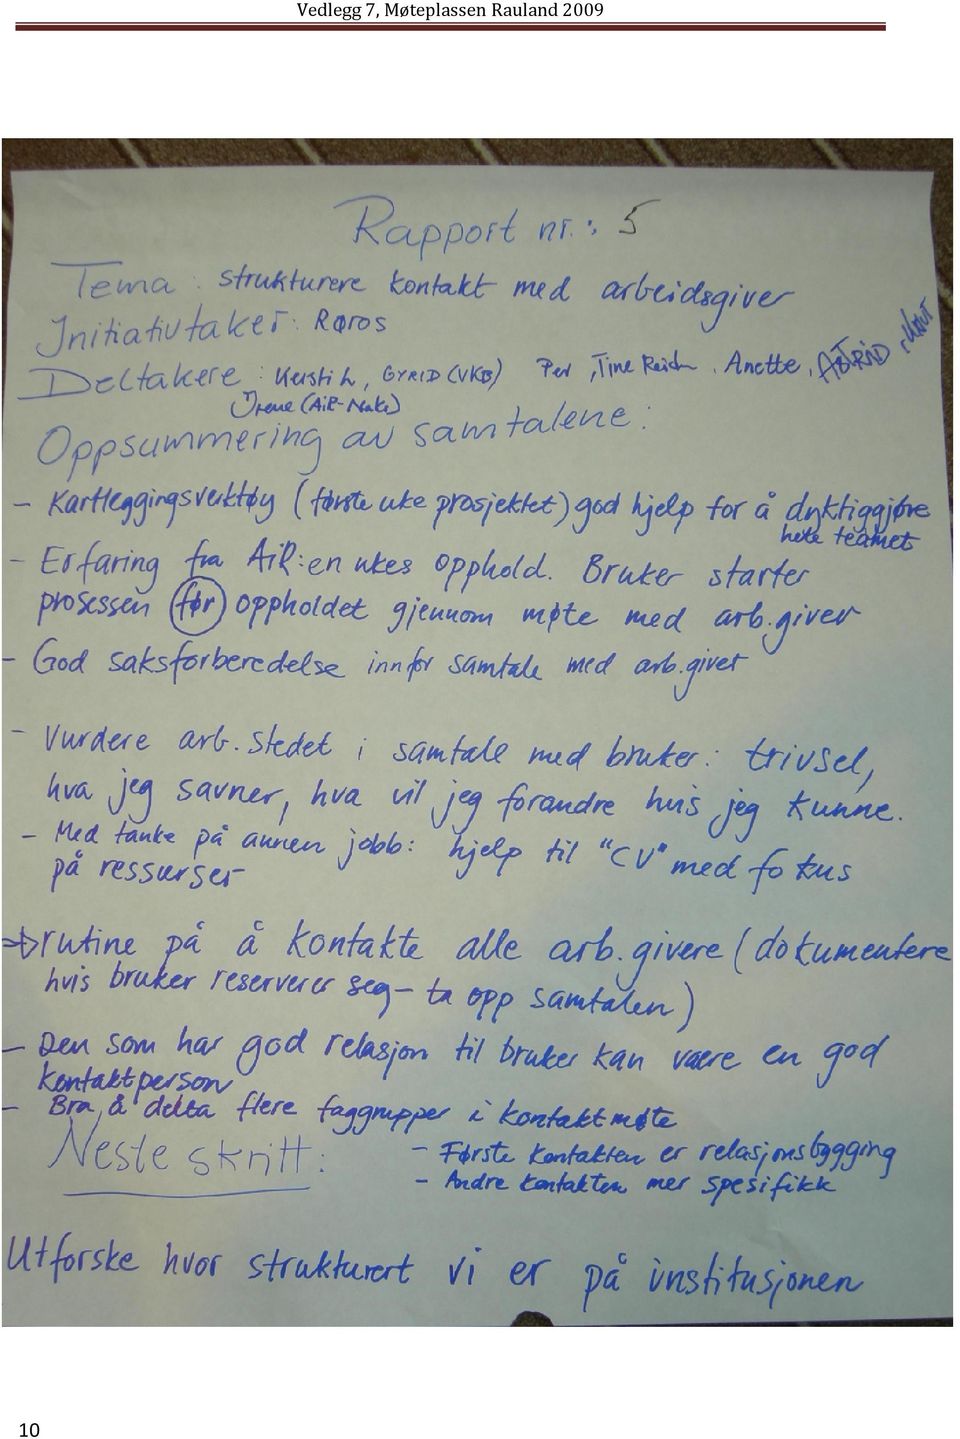 Vedlegg 7, Møteplassen Rauland 2009
Rapport nr.: 5
Tema: strukturere kontakt med arbeidsgiver
Initiativtaker: Røros
Deltakere: Kerstin, GYRID (VKB) Per, Tine Reich, Anette, ASTRID,
Irene (AiR-Nakc)
Oppsummering av samtalene:
- Kartleggingsverktøy (første uke prosjektet) god hjelp for å dyktiggjøre
hele teamet
- Erfaring fra AiR: en ukes opphold. Bruker starter
prosessen før oppholdet gjennom møte med arb.giver
- God saksforberedelse innfor samtale med arb.giver
- Vurdere arb.stedet i samtale med bruker: trivsel,
hva jeg savner, hva vil jeg forandre hvis jeg kunne.
- Med tanke på annen jobb: hjelp til "CV" med fokus
på ressurser
⇒ rutine på å kontakte alle arb.givere (dokumentere
hvis bruker reserverer seg - ta opp samtalen)
- Den som har god relasjon til bruker kan være en god
kontaktperson
- Bra, å delta flere faggrupper i kontaktmøte
Neste skritt:
- Første kontakten er relasjonsbygging
- Andre kontakten mer spesifikk
Utforske hvor strukturert vi er på institusjonen
10